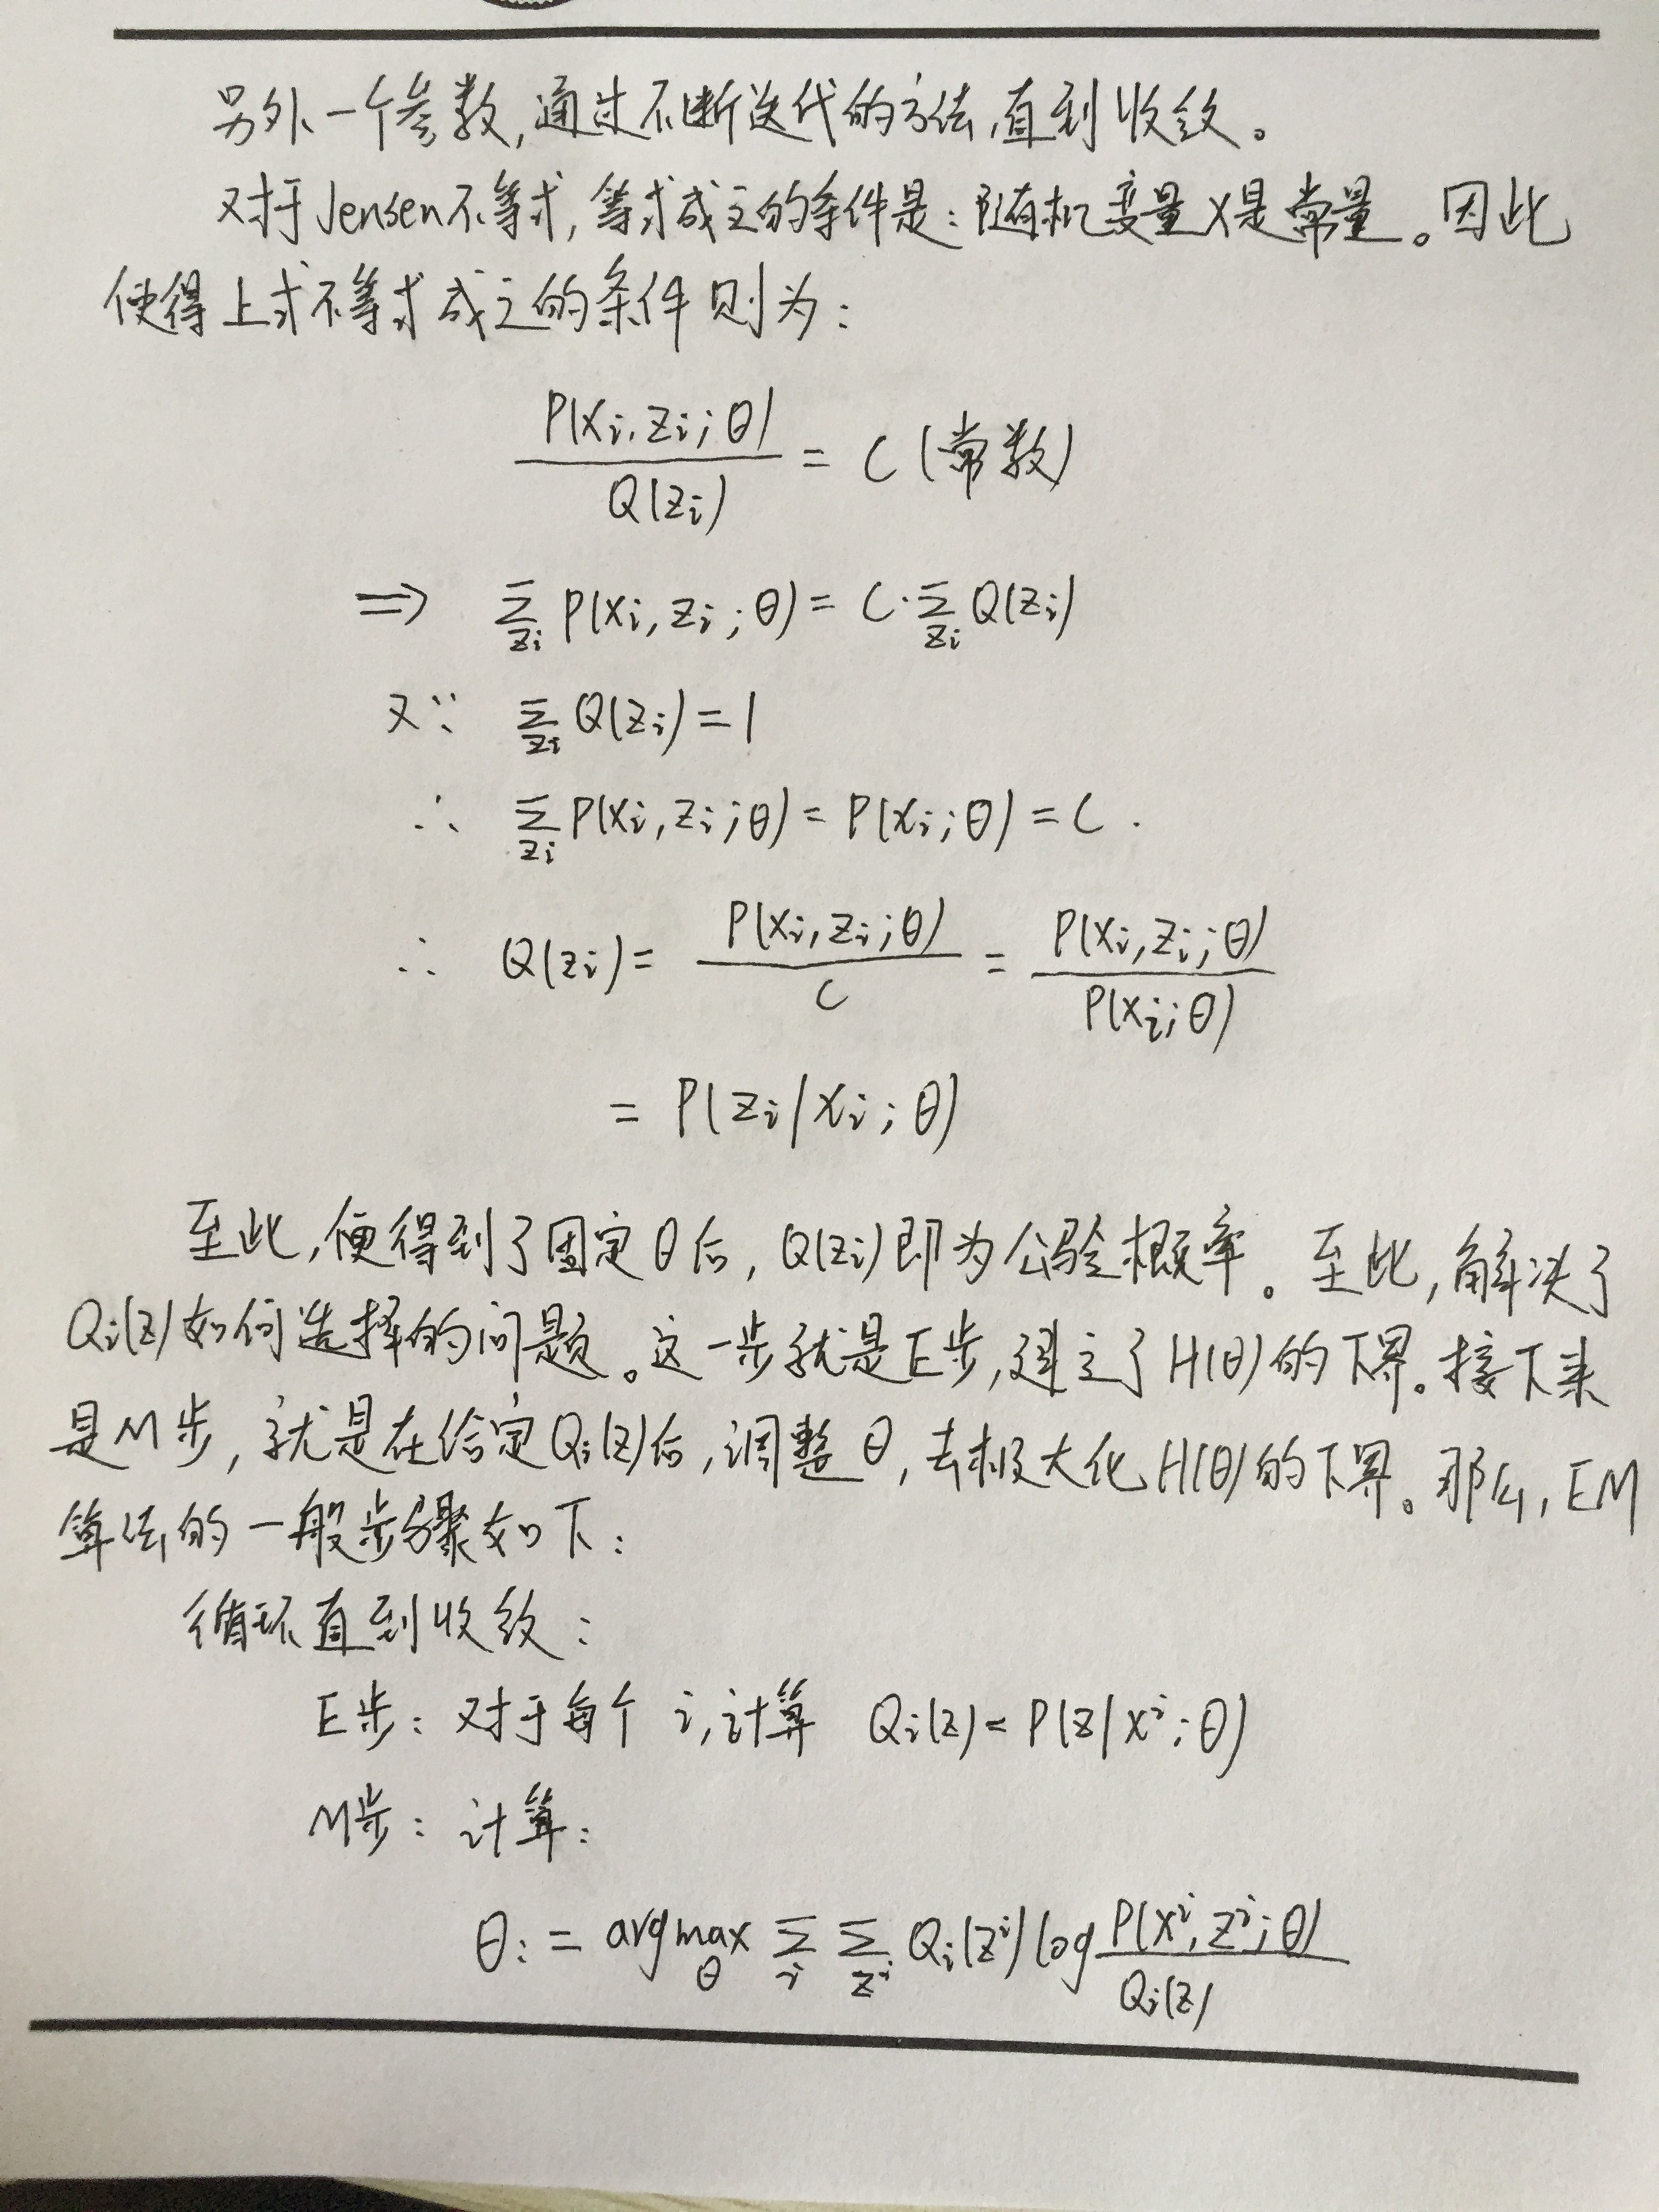 另外一个参数,通过不断迭代的方法,直到收敛。
对于Jensen不等式,等式成立的条件是:随机变量X是常量。因此
使得上式不等式成立的条件则为:
P(xi,zi;θ)/Q(zi) = C (常数)
⇒ Σ_zi P(xi,zi;θ) = C·Σ_zi Q(zi)
又∵ Σ_zi Q(zi) = 1
∴ Σ_zi P(xi,zi;θ) = P(xi;θ) = C.
∴ Q(zi) = P(xi,zi;θ)/C = P(xi,zi;θ)/P(xi;θ)
= P(zi|xi;θ)
至此,便得到了固定θ后,Q(zi)即为公验概率。至此,解决了
Qi(z)如何选择的问题。这一步就是E步,建立了H(θ)的下界。接下来
是M步,就是在给定Qi(z)后,调整θ,去极大化H(θ)的下界。那么,EM
算法的一般步骤如下:
循环直到收敛:
E步:对于每个i,计算 Qi(z) = P(z|x^i;θ)
M步:计算:
θ := argmax_θ Σ_i Σ_z^i Qi(z^i) log P(x^i,z^i;θ)/Qi(z)